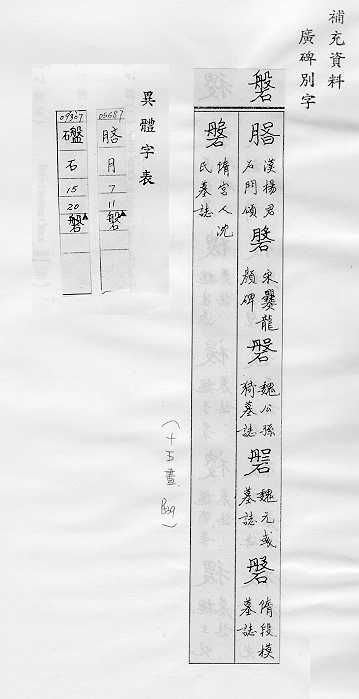 補充資料
廣碑別字
磐
䐚 漢楊君石門頌
磐 宋爨龍顏碑
磐 魏公孫猗墓誌
磐 魏元彧墓誌
磐 隋段模墓誌
磐 隋宮人沈氏墓誌
(十五畫 P.339)
異體字表
月
7
11
磐
石
15
20
磐